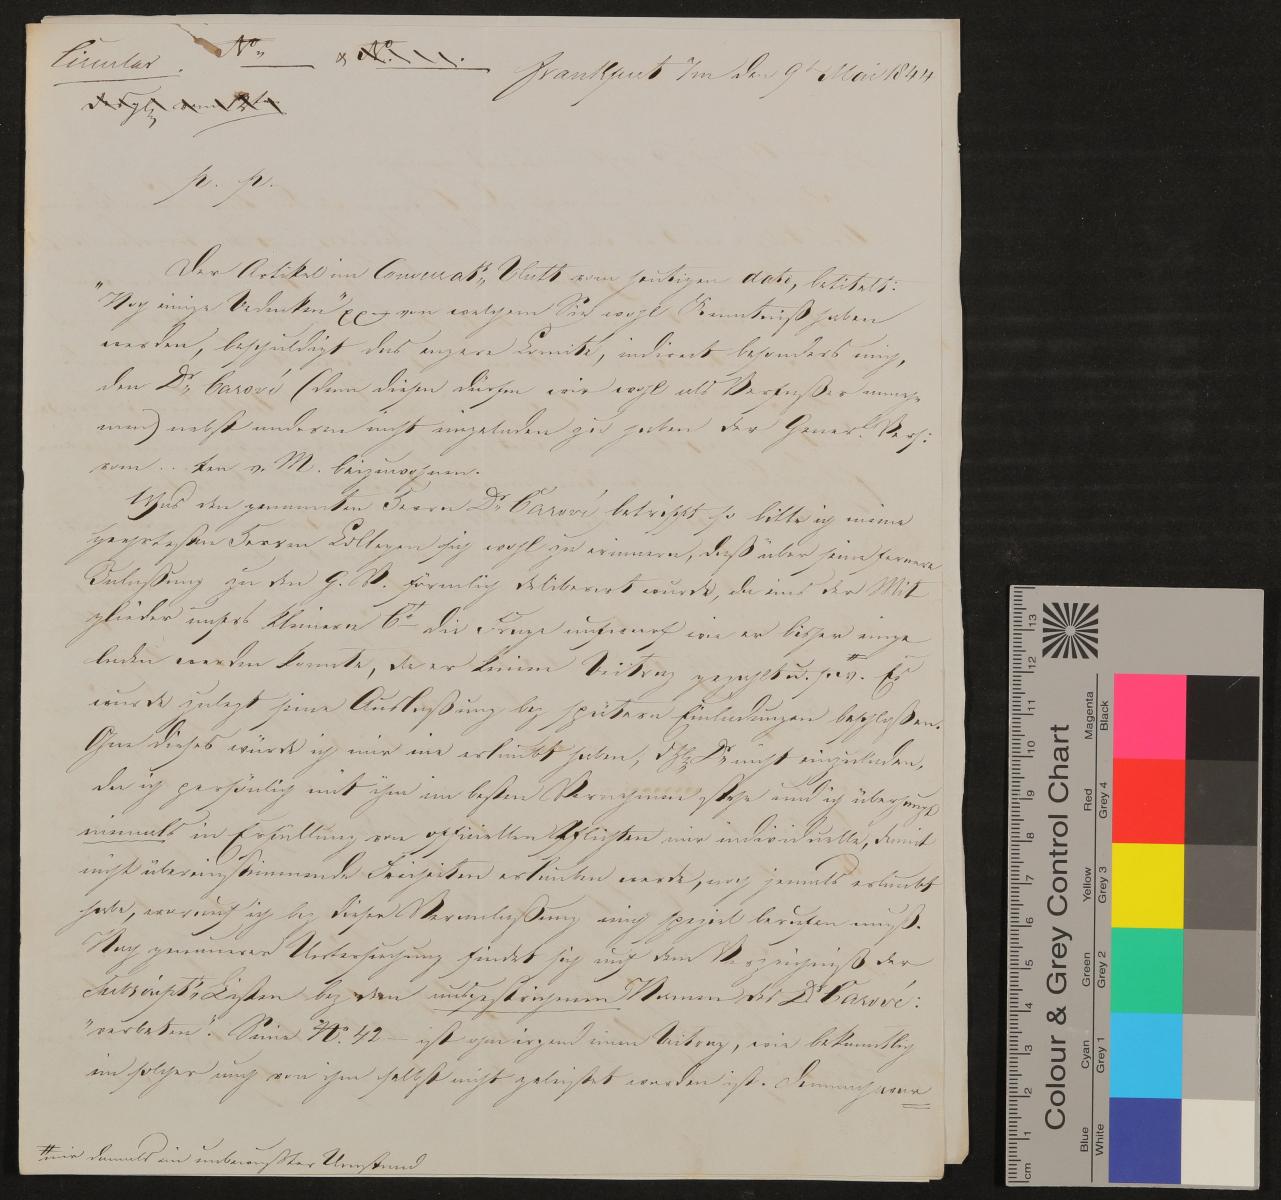 Circular. No. & No.
Frankfurt a/m den 9t Mai 1844
p. p.
Der Artikel im Conversat.s Blatt vom heutigen dato, betitelt:
"Noch einige Bedenken" von welchem Sie wohl Kenntniß haben
werden, beschuldigt das engere Comité, indirect besonders mich,
den Dr. Carové (denn diesen dürfen wir wohl als Verfaßer anneh
men) nebst anderen nicht eingeladen zu haben der Gener. Vers:
vom .. ten v. M. beizuwohnen.
Was den genannten Herrn Dr. Carové betrifft so bitte ich meine
geehrtesten Herren Collegen sich wohl zu erinnern, daß über seine fernere
Zulaßung zu den G. V. förmlich deliberirt wurde, da eins der Mit
glieder unsers kleineren Ct. die Frage aufwarf wie er bisher einge
laden werden konnte, da er keinen Beitrag gezahlt u. s. w. # Es
wurde zuletzt seine Auslaßung bey spätern Einladungen beschloßen.
Ohne dieses würde ich mir nie erlaubt haben, Dr. nicht einzuladen,
da ich persönlich mit ihm im besten Vernehmen stehe und ich überhaupt
niemals in Erfüllung von officiellen Pflichten mir individuelle, damit
nicht übereinstimmende Freiheiten erlauben werde, noch jemals erlaubt
habe, worauf ich bey dieser Veranlaßung mich speziel berufen muß.
Nach genauerer Untersuchung findet sich auf dem Verzeichniß der
Subscript.s Listen bey dem ausgestrichenen Namen des Dr. Carové:
"verbeten". Seine No. 42 — ist ohne irgend einen Beitrag, wie bekanntlich
ein solcher auch von ihm selbst nicht geleistet worden ist. Demnach war
# mir damals ein unbewußter Umstand